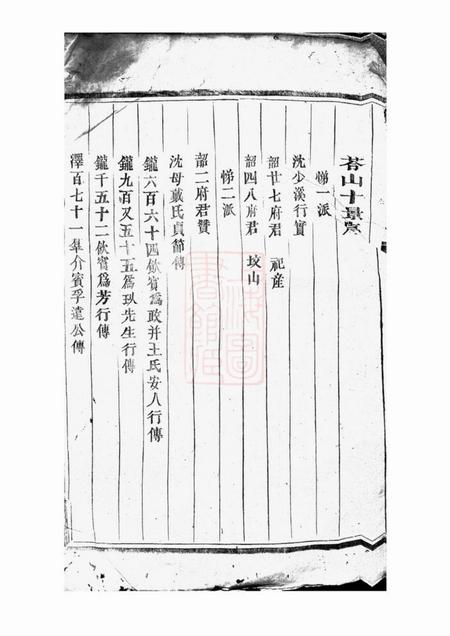 苔山十景序
悌一派
沈少溪行實
韶廿七府君 祀產
韶四八府君 墳山
悌二派
韶二府君贊
沈母戴氏貞節傳
鑨六百六十四飲賓爲政并王氏安人行傳
鑨九百又五十五爲玖先生行傳
鑨千五十二飲賓爲芳行傳
澤百七十一介賓孚遠公傳
上海圖書館藏